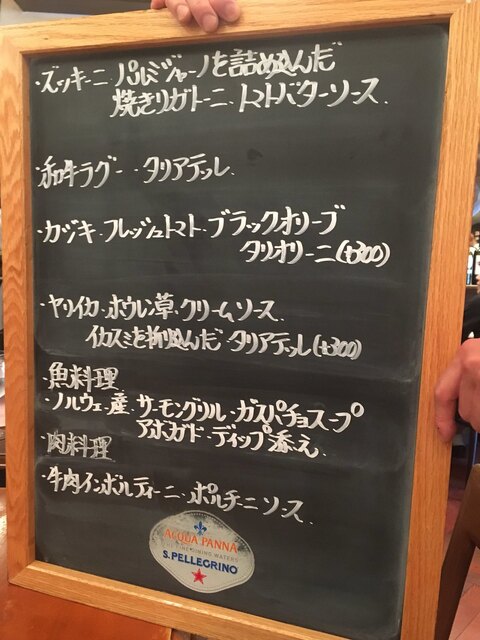 ・ズッキーニ パルミジャーノを詰め込んだ
焼きリガトーニ、トマトバターソース、
・和牛ラグー タリアテッレ、
・カジキ・フレッシュトマト・ブラックオリーブ
タリオリーニ(+300)
・ヤリイカ・ホウレン草・クリームソース、
イカスミを折り込んだ タリアテッレ(+300)
魚料理
・ノルウェー産 サーモングリル・ガスパチョスープ
アボガド・ディップ添え、
・肉料理
・牛肉インボルティーニ・ポルチーニソース、
ACQUA PANNA
FINE DINING WATERS
S.PELLEGRINO